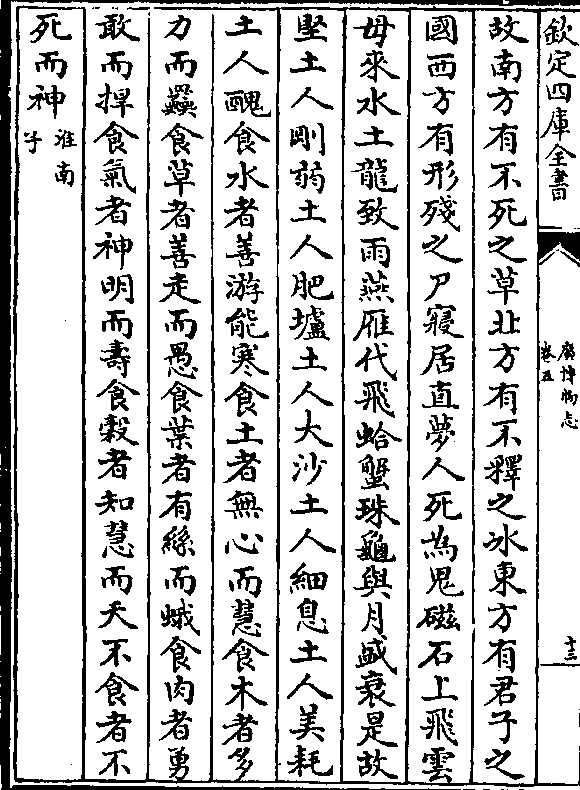 欽定四庫全書
廣博物志
卷五
十三
故南方有不死之草北方有不釋之冰東方有君子之
國西方有形殘之尸寢居直夢人死為鬼磁石上飛雲
母來水土龍致雨燕雁代飛蛤蟹珠龜與月盛衰是故
堅土人剛弱土人肥壚土人大沙土人細息土人美耗
土人醜食水者善游能寒食土者無心而慧食木者多
力而𡚤食草者善走而愚食葉者有絲而蛾食肉者勇
敢而捍食氣者神明而壽食穀者知慧而夭不食者不
死而神淮南
子